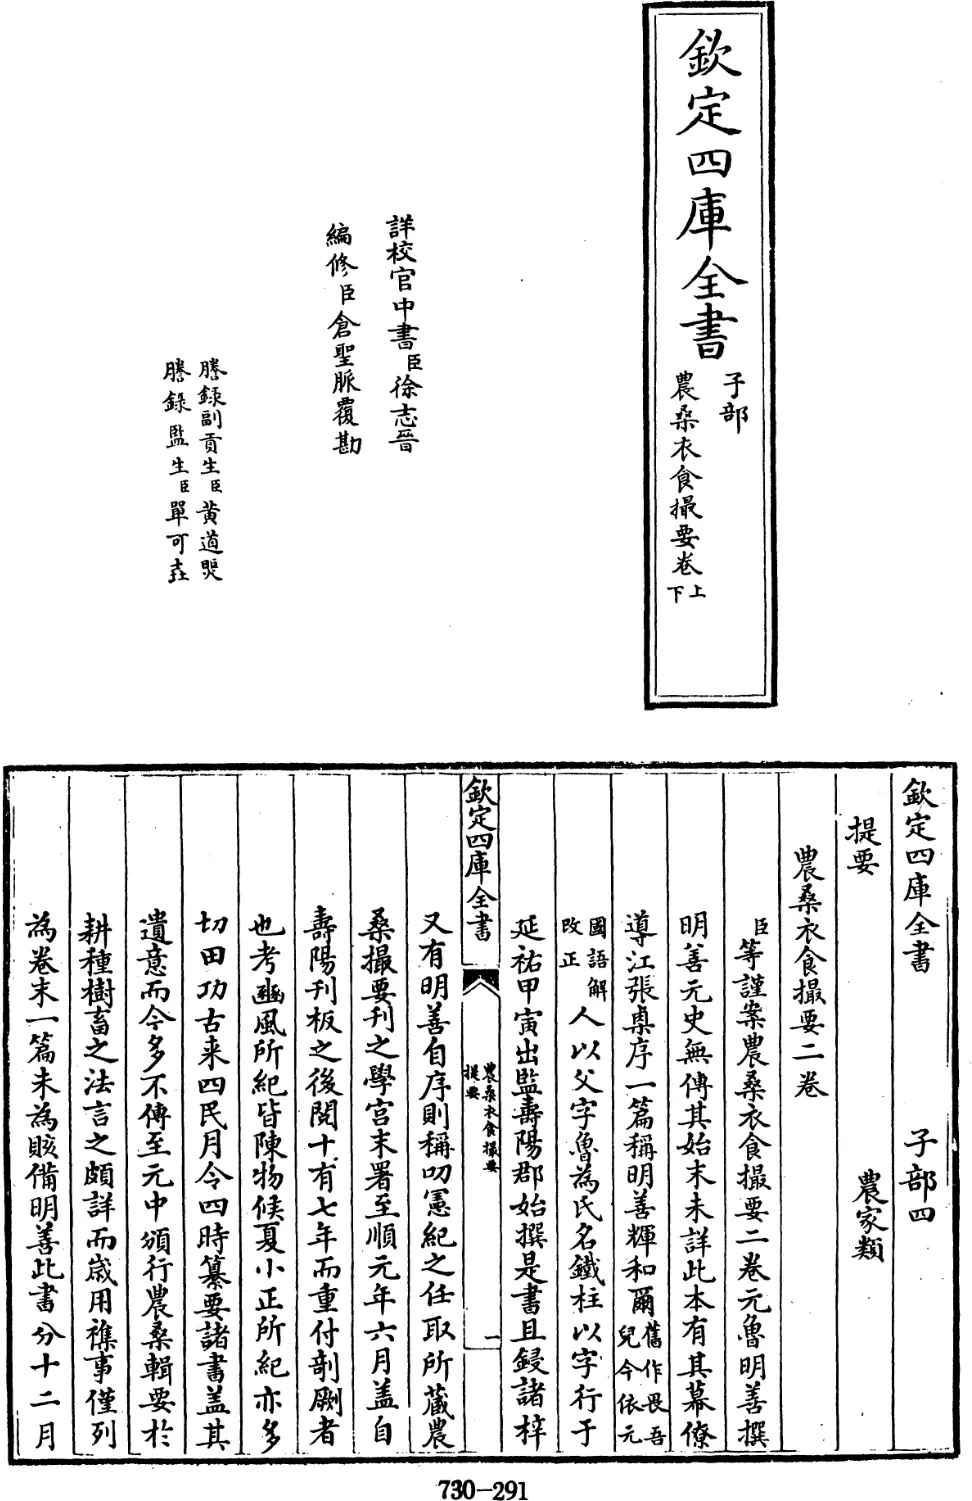 欽定四庫全書
子部
農桑衣食撮要卷上
下
詳校官中書臣徐志晉
編修臣倉聖脈覆勘
謄錄副貢生臣黃道煚
謄錄監生臣單可垚
欽定四庫全書　子部四
提要　農家類
農桑衣食撮要二卷
臣等謹案農桑衣食撮要二卷元魯明善撰
明善元史無傳其始末未詳此本有其幕僚
導江張㮚序一篇稱明善輝和爾舊作畏吾兒今依元
國語解改正人以父字魯為氏名鐵柱以字行于
延祐甲寅出監壽陽郡始撰是書且鋟諸梓
欽定四庫全書
農桑衣食撮要
提要
一
又有明善自序則稱叨憲紀之任取所藏農
桑撮要刊之學宮末署至順元年六月蓋自
壽陽刊板之後閱十有七年而重付剞劂者
也考豳風所紀皆陳物候夏小正所紀亦多
切田功古来四民月令四時纂要諸書蓋其
遺意而今多不傳至元中頒行農桑輯要於
耕種樹畜之法言之頗詳而歲用襍事僅列
為卷末一篇未為賅備明善此書分十二月
730-291